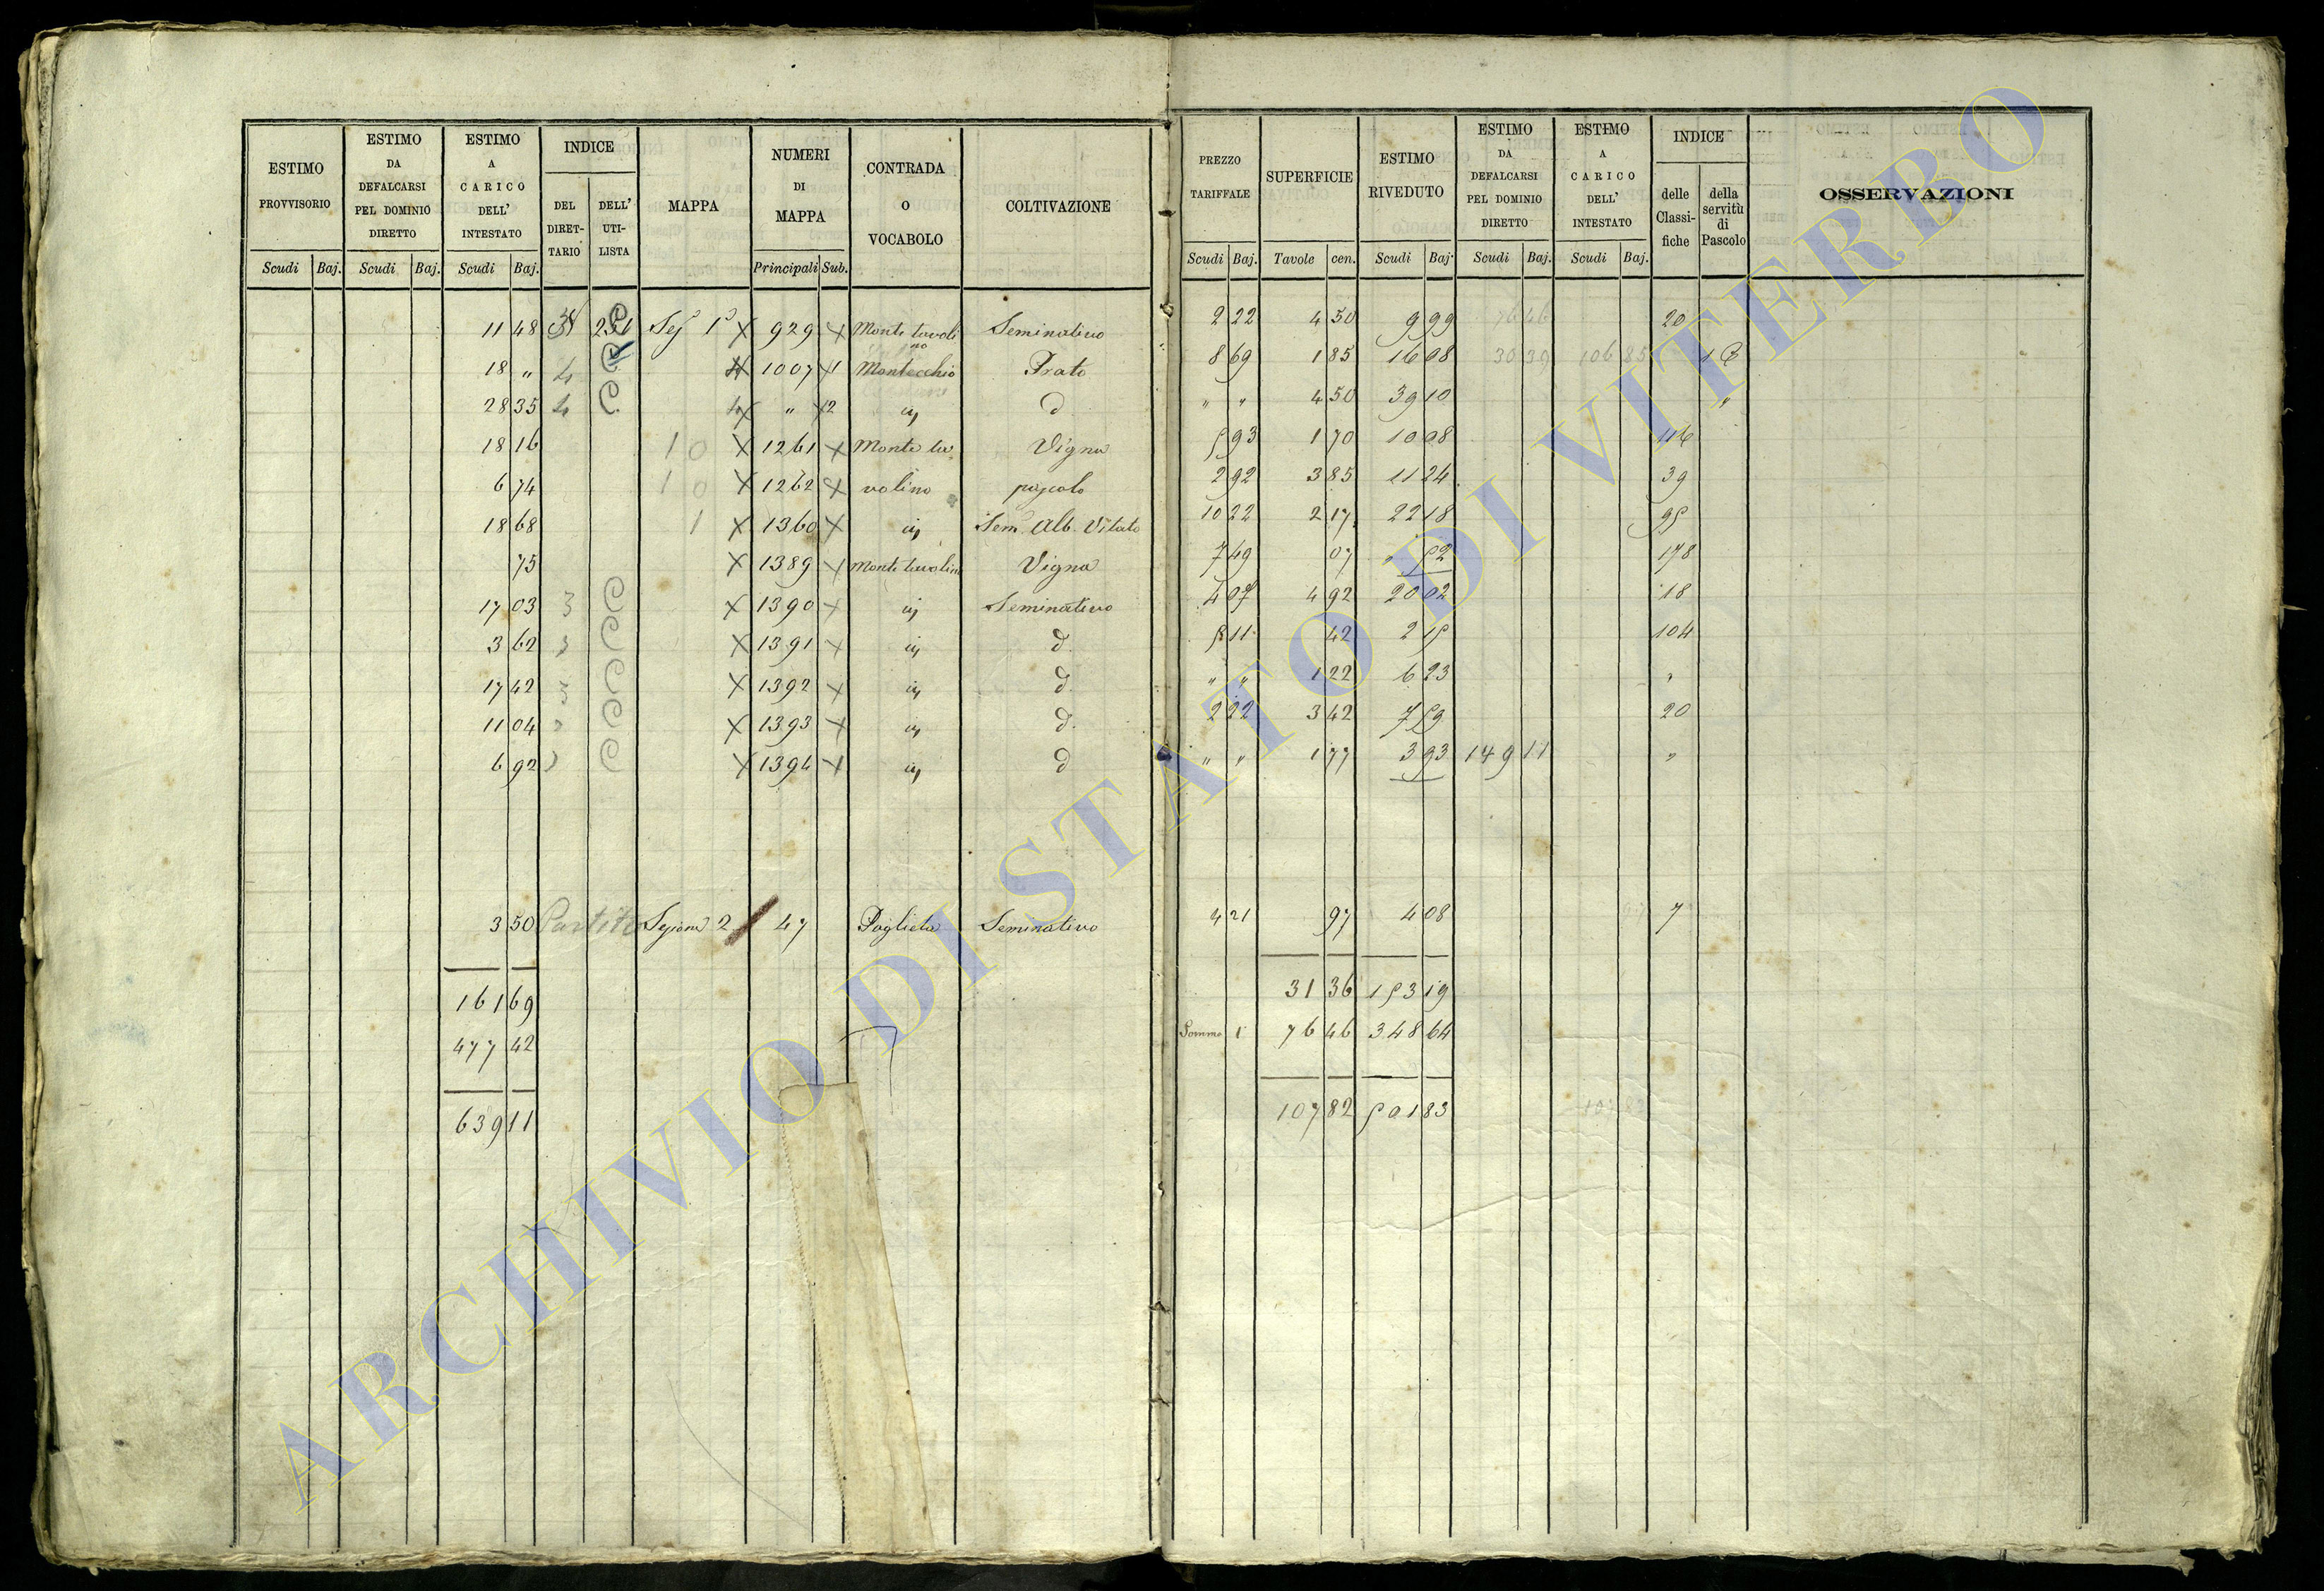 ESTIMO PROVVISORIO
ESTIMO DA DEFALCARSI PEL DOMINIO DIRETTO
ESTIMO A CARICO DELL' INTESTATO
INDICE
DEL DIRET-TARIO
DELL' UTI-LISTA
MAPPA
NUMERI DI MAPPA
CONTRADA O VOCABOLO
COLTIVAZIONE
Scudi Baj. Scudi Baj. Scudi Baj. Principali Sub.
11 48 251 Sej.e 1a 929 Monte tavolino Seminativo
18 „ 4 1007 1 Montecchio Prato
28 35 4 „ 2 id
18 16 1 0 1261 Monte ta Vigna
6 74 1 0 1262 volino pascolo
18 68 1 1360 Sem. Alb. Vitato
75 1389 Monte tavolino Vigna
17 03 3 1390 Seminativo
3 62 3 1391 d.
17 42 3 1392 d.
11 04 1393 d.
6 92 1394 d
3 50 Partite Sezione 2 47 Paglieta Seminativo
161 69
477 42
639 11
PREZZO TARIFFALE
SUPERFICIE
ESTIMO RIVEDUTO
ESTIMO DA DEFALCARSI PEL DOMINIO DIRETTO
ESTIMO A CARICO DELL' INTESTATO
INDICE
delle Classi-fiche
della servitù di Pascolo
OSSERVAZIONI
Scudi Baj. Tavole cen. Scudi Baj. Scudi Baj. Scudi Baj.
2 22 4 50 9 99 76 46 20
8 69 1 85 16 08 30 39 106 85 1
„ „ 4 50 39 10 „
5 93 1 70 10 08 116
2 92 3 85 11 24 39
10 22 2 17 22 18 95
7 49 07 „ 52 178
4 07 4 92 20 02 18
5 11 42 2 15 104
„ „ 1 22 6 23 „
2 22 3 42 7 59 20
„ „ 1 77 3 93 149 11 „
4 21 97 4 08 7
31 36 153 19
Somma 1 76 46 348 64
107 82 501 83
ARCHIVIO DI STATO DI VITERBO